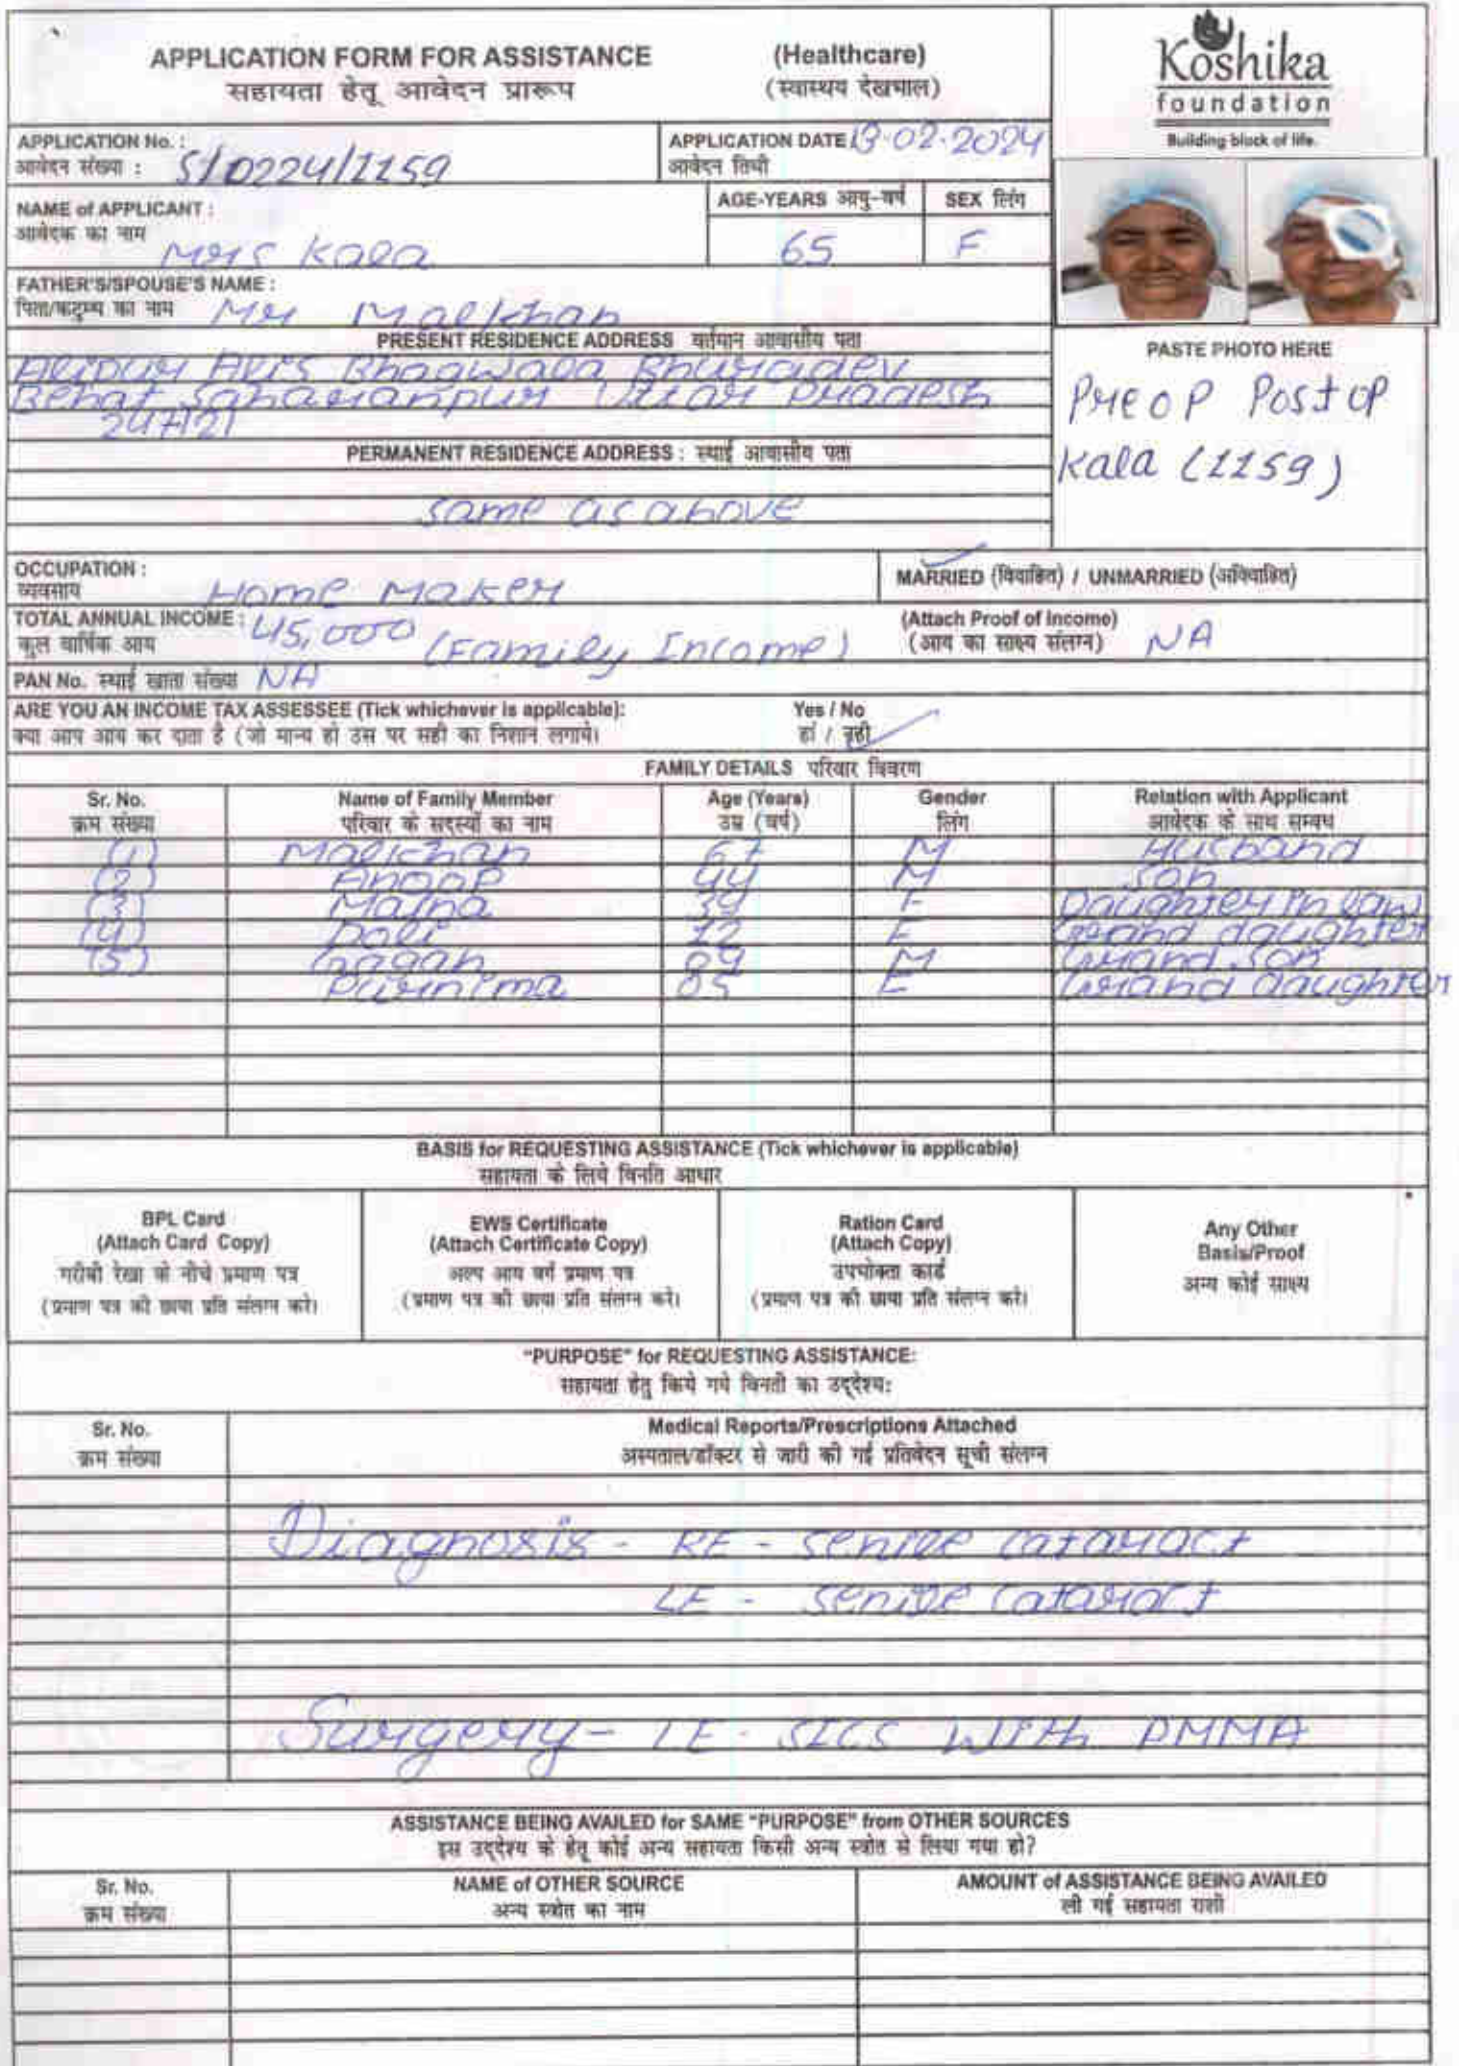 APPLICATION FORM FOR ASSISTANCE (Healthcare)
सहायता हेतू आवेदन प्रारूप (स्वास्थय देखभाल)
Koshika
foundation
Building block of life.
APPLICATION No. :
आवेदन संख्या : S/0224/1159
APPLICATION DATE 19-02-2024
आवेदन तिथी
NAME of APPLICANT :
आवेदक का नाम Mrs Kala
AGE-YEARS आयु-वर्ष 65
SEX लिंग F
FATHER'S/SPOUSE'S NAME :
पिता/कटुम्ब का नाम Mr Malkhan
PRESENT RESIDENCE ADDRESS वर्तमान आवासीय पता
Alipur Bhagwala Bhuradev
Behat Saharanpur Uttar Pradesh
247121
PERMANENT RESIDENCE ADDRESS : स्थाई आवासीय पता
same as above
PASTE PHOTO HERE
Preop Post op
Kala (1159)
OCCUPATION :
व्यवसाय Home Maker
MARRIED (विवाहित) / UNMARRIED (अविवाहित)
TOTAL ANNUAL INCOME : 45,000 (Family Income)
कुल वार्षिक आय
(Attach Proof of Income)
(आय का साक्ष्य संलग्न) NA
PAN No. स्थाई खाता संख्या NA
ARE YOU AN INCOME TAX ASSESSEE (Tick whichever is applicable): Yes / No
क्या आप आय कर दाता है (जो मान्य हो उस पर सही का निशान लगाये। हां / नही
FAMILY DETAILS परिवार विवरण
Sr. No. Name of Family Member Age (Years) Gender Relation with Applicant
क्रम संख्या परिवार के सदस्यों का नाम उम्र (वर्ष) लिंग आवेदक के साथ सम्बध
(1) Malkhan 67 M Husband
(2) Anoop 44 M Son
(3) Maina 39 F Daughter in law
(4) Doli 12 F Grand daughter
(5) Gagan 09 M Grand son
Purnima 05 F Grand daughter
BASIS for REQUESTING ASSISTANCE (Tick whichever is applicable)
सहायता के लिये विनति आधार
BPL Card
(Attach Card Copy)
गरीबी रेखा के नीचे प्रमाण पत्र
(प्रमाण पत्र की छाया प्रति संलग्न करे।
EWS Certificate
(Attach Certificate Copy)
अल्प आय वर्ग प्रमाण पत्र
(प्रमाण पत्र की छाया प्रति संलग्न करे।
Ration Card
(Attach Copy)
उपभोक्ता कार्ड
(प्रमाण पत्र की छाया प्रति संलग्न करे।
Any Other
Basis/Proof
अन्य कोई साक्ष्य
"PURPOSE" for REQUESTING ASSISTANCE:
सहायता हेतु किये गये विनती का उद्देश्य:
Sr. No. Medical Reports/Prescriptions Attached
क्रम संख्या अस्पताल/डॉक्टर से जारी की गई प्रतिवेदन सूची संलग्न
Diagnosis - RE - senile cataract
LE - senile cataract
Surgery - LE - SICS with PMMA
ASSISTANCE BEING AVAILED for SAME "PURPOSE" from OTHER SOURCES
इस उद्देश्य के हेतू कोई अन्य सहायता किसी अन्य स्त्रोत से लिया गया हो?
Sr. No. NAME of OTHER SOURCE AMOUNT of ASSISTANCE BEING AVAILED
क्रम संख्या अन्य स्त्रोत का नाम ली गई सहायता राशी